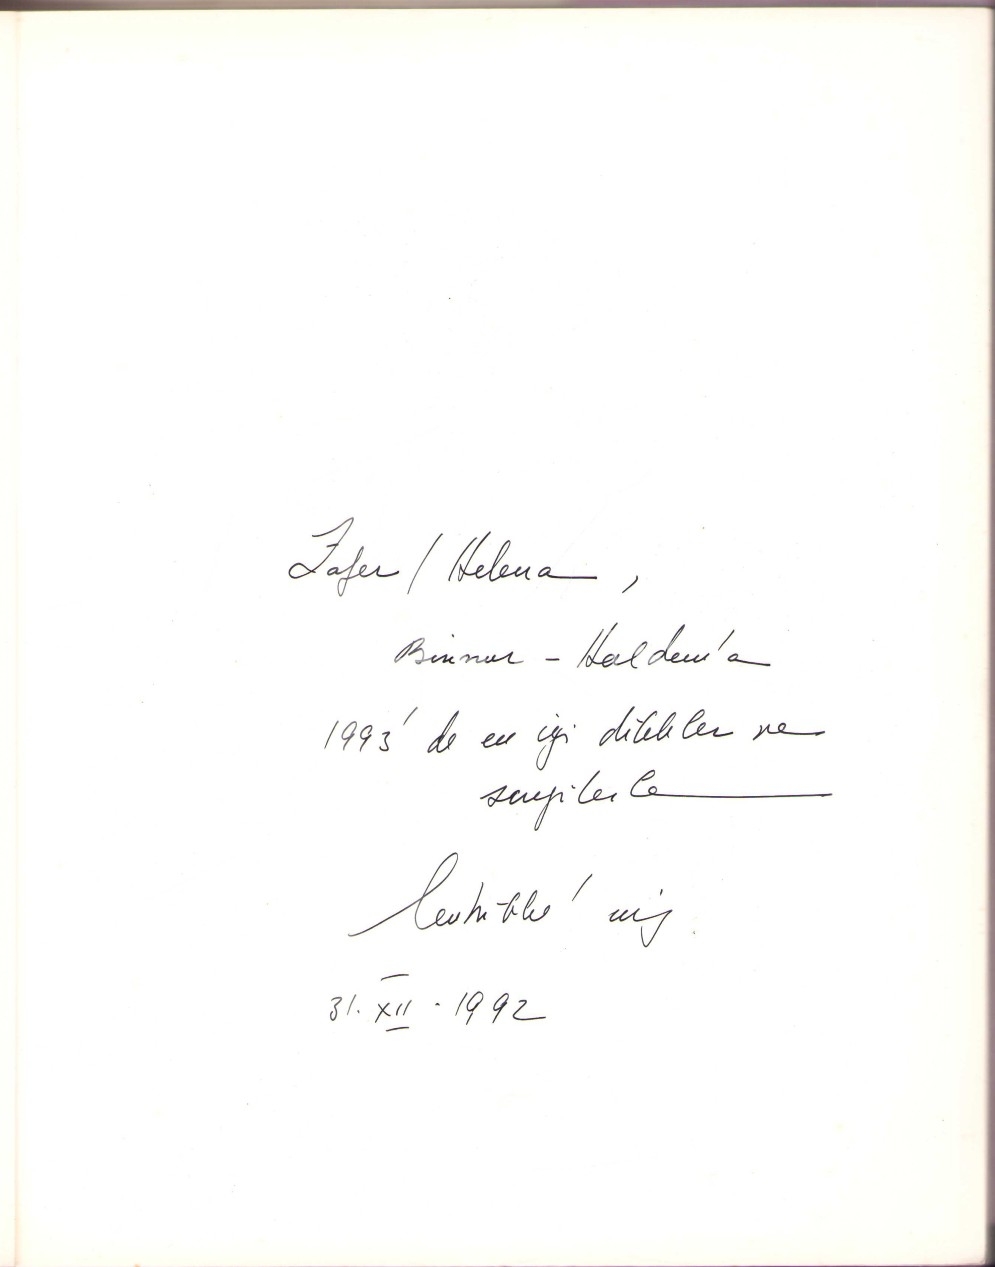 Zafer / Helena ,
Binnur - Haldun'a
1993' de en iyi dilekler ve
sevgilerle
31. XII . 1992